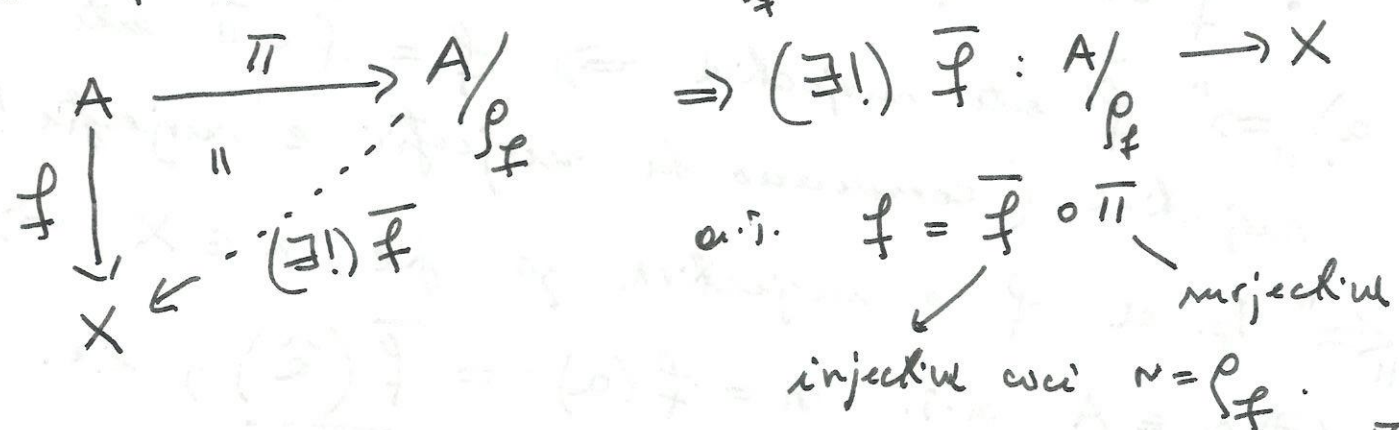 A π A/ρ_f ⇒ (∃!) f̅ : A/ρ_f → X
f " (∃!) f̅ a.î. f = f̅ ∘ π
X surjectivă
injectivă căci ~ = ρ_f .